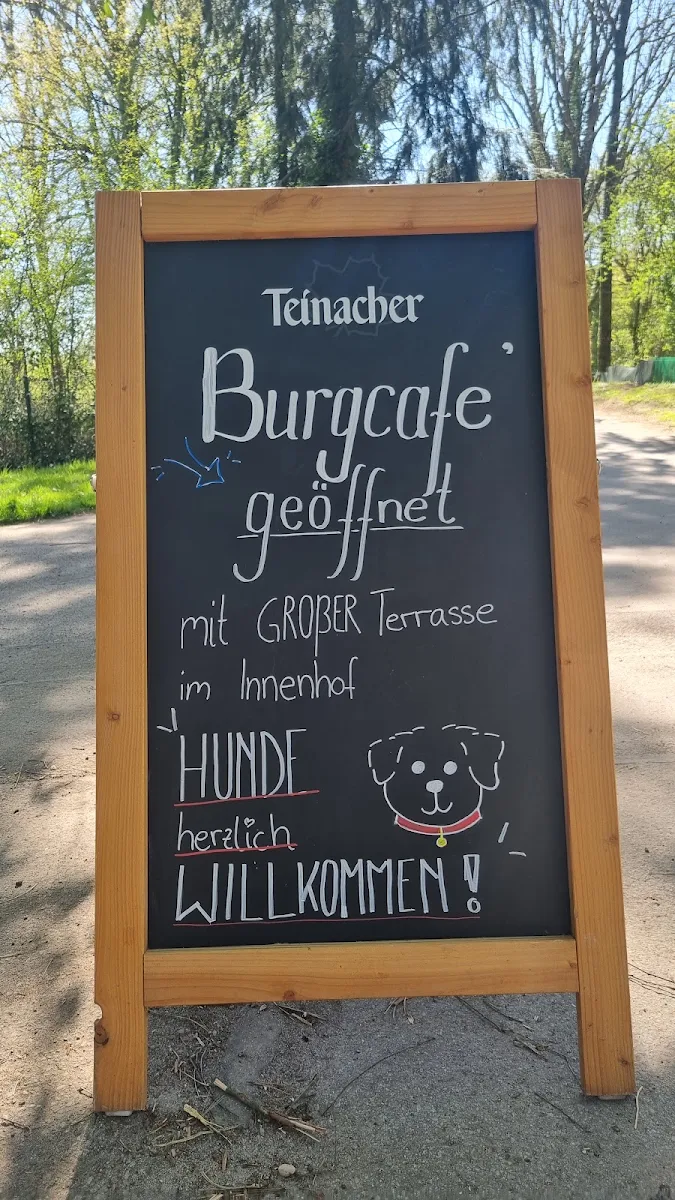 Teinacher
Burgcafe'
geöffnet
mit GROßER Terrasse
im Innenhof
HUNDE
herzlich
WILLKOMMEN!